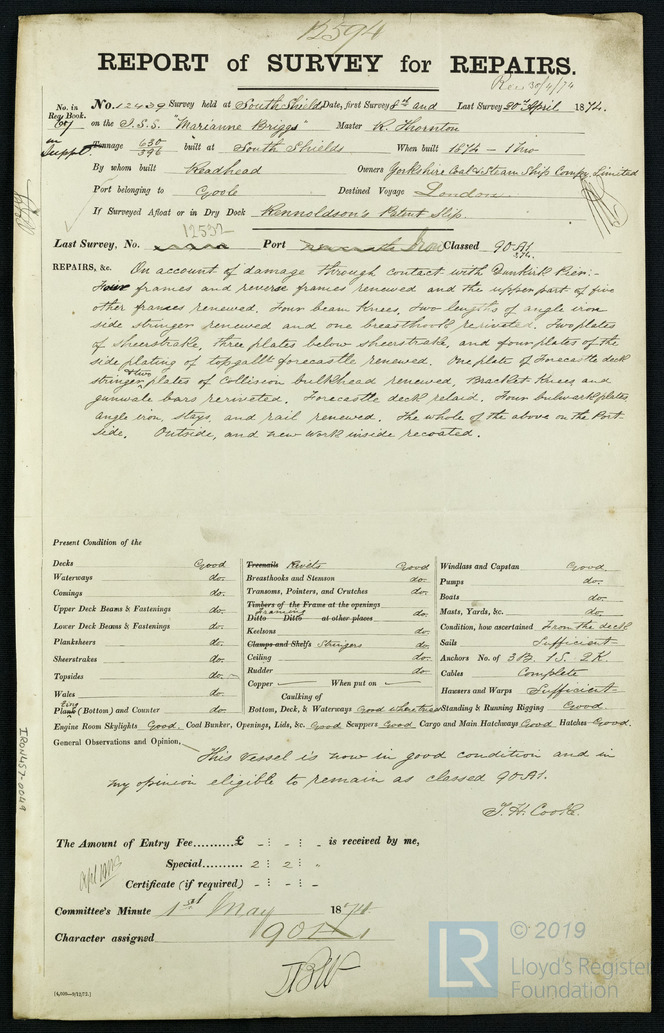 12594
REPORT of SURVEY for REPAIRS.
Rec 30/4/74
No. in Reg. Book. No. 12439 Survey held at South Shields Date, first Survey 8th and Last Survey 20th April 1874.
on the I.S.S. "Marianne Briggs" Master R. Thornton
in Suppt. Tonnage 630 396 built at South Shields When built 1874 - 1 mo
By whom built Readhead Owners Yorkshire Coal & Steam Ship Compy Limited
Port belonging to Goole Destined Voyage London
If Surveyed Afloat or in Dry Dock Rennoldson's Patent Slip.
12532
Last Survey, No. Port Iron Classed 90A1.
REPAIRS, &c. On account of damage through contact with Dunkirk Pier:-
Four frames and reverse frames renewed and the upper part of five
other frames renewed. Four beam knees, two lengths of angle iron
side stringer renewed and one breasthook rerivated. Two plates
of sheerstrake, three plates below sheerstrake, and four plates of the
side plating of topgallt forecastle renewed. One plate of Forecastle deck
stringer & two plates of Collision bulkhead renewed, Bracket Knees and
gunwale bars rerivated. Forecastle deck relaid. Four bulwark plates
angle iron, stays, and rail renewed. The whole of the above on the Port
side. Outside, and new work inside recoated.
Present Condition of the
Decks Good Treenails Rivets Good Windlass and Capstan Good.
Waterways do. Breasthooks and Stemson do. Pumps do.
Comings do. Transoms, Pointers, and Crutches do. Boats do.
Upper Deck Beams & Fastenings do. Timbers of the Frame at the openings Framing do. Masts, Yards, &c. do.
Ditto Ditto at other places
Lower Deck Beams & Fastenings do. Keelsons do. Condition, how ascertained From the deck
Planksheers do. Clamps and Shelfs Stringers do. Sails Sufficient
Sheerstrakes do. Ceiling do. Anchors No. of 3B. 1S. 2K.
Topsides do. Rudder do. Cables Complete
Wales do. Copper — When put on — Hausers and Warps Sufficient
Caulking of
Plating (Bottom) and Counter do. Bottom, Deck, & Waterways Good where tried Standing & Running Rigging Good.
Engine Room Skylights Good. Coal Bunker, Openings, Lids, &c. Good Scuppers Good Cargo and Main Hatchways Good Hatches Good.
General Observations and Opinion, This Vessel is now in good condition and in
my opinion eligible to remain as classed 90A1.
T. H. Cooke.
The Amount of Entry Fee..........£ - : - : - is received by me,
Special.......... 2 : 2 : "
Certificate (if required) - : - : -
Committee's Minute 1st May 1874
Character assigned 90A1
[4,000—9/12/72.]
IRON457-0049
© 2019
LR
Lloyd's Register
Foundation